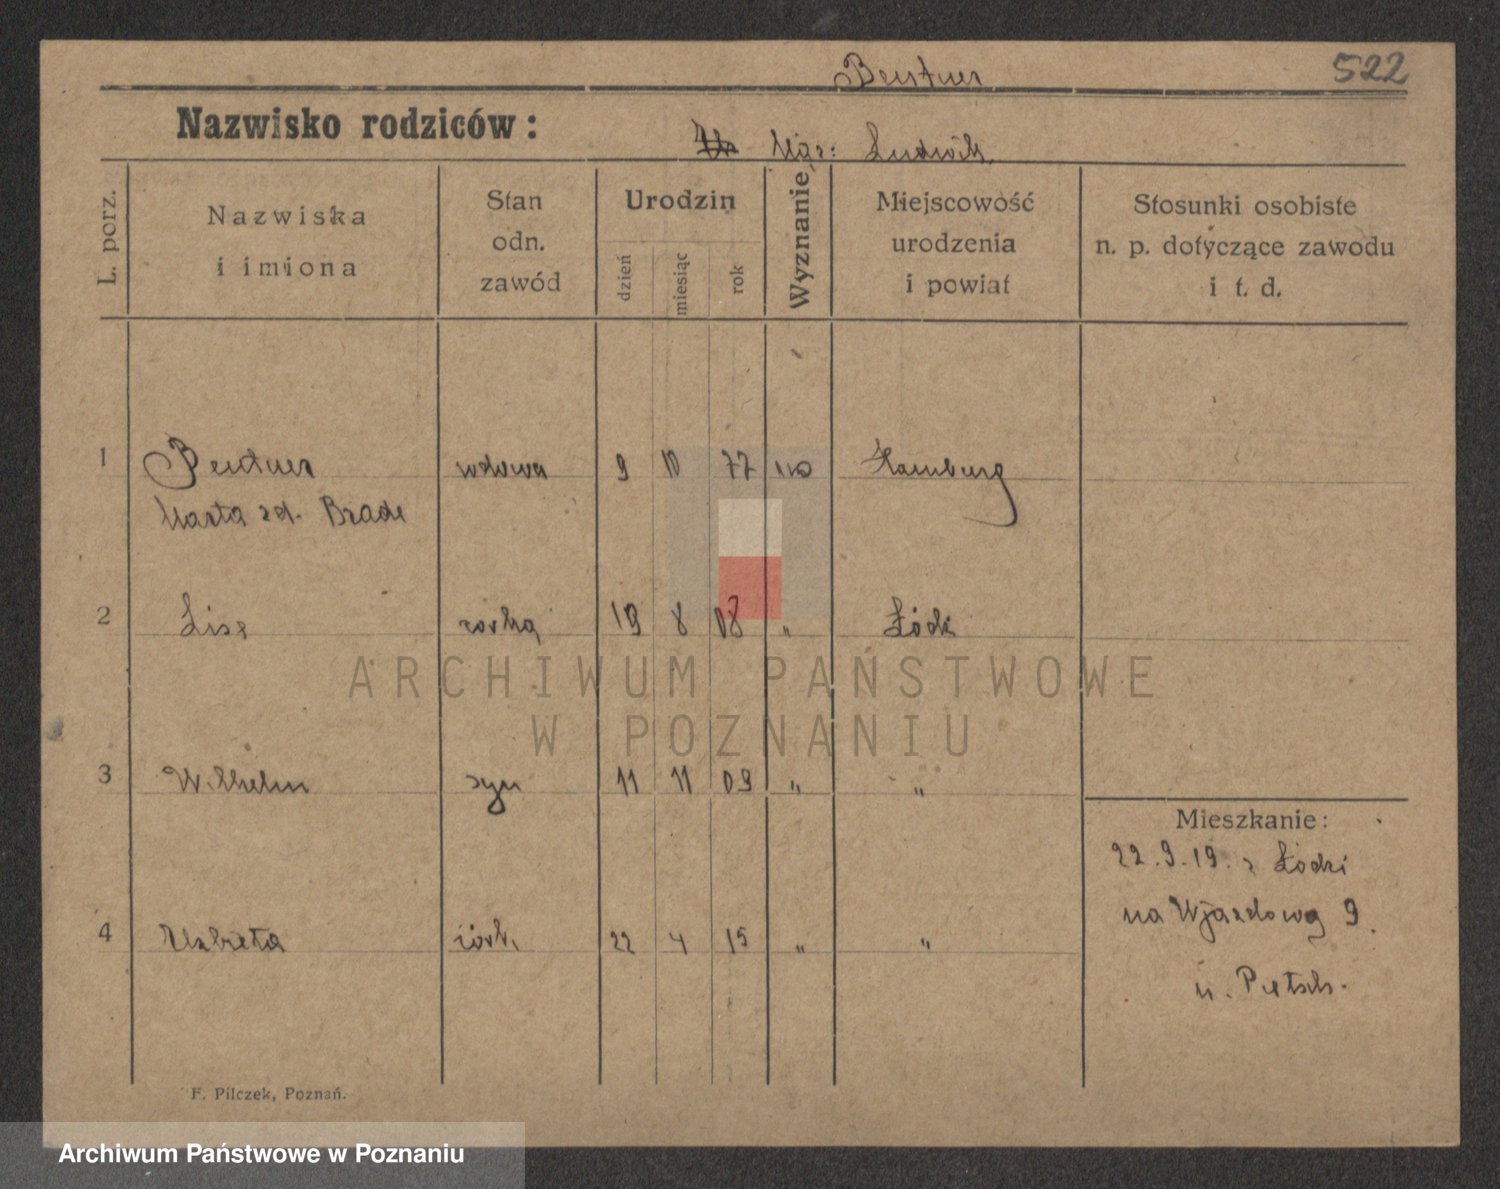 Beutner
522
Nazwisko rodziców:
Mąż: Ludwik
L. porz.
Nazwiska
i imiona
Stan
odn.
zawód
Urodzin
dzień
miesiąc
rok
Wyznanie
Miejscowość
urodzenia
i powiat
Stosunki osobiste
n. p. dotyczące zawodu
i t. d.
1 Beutner wdowa 9 10 77 Hamburg
Marta zd. Brade
2 Lisa córka 19 8 08 " Łódź
3 Wilhelm syn 11 11 09 " "
4 Elzbieta córk. 22 4 15 " "
Mieszkanie:
22.9.19. z Łodzi
na Wjazdową 9.
u. Pietsch.
F. Pilczek, Poznań.
ARCHIWUM PAŃSTWOWE
W POZNANIU
Archiwum Państwowe w Poznaniu